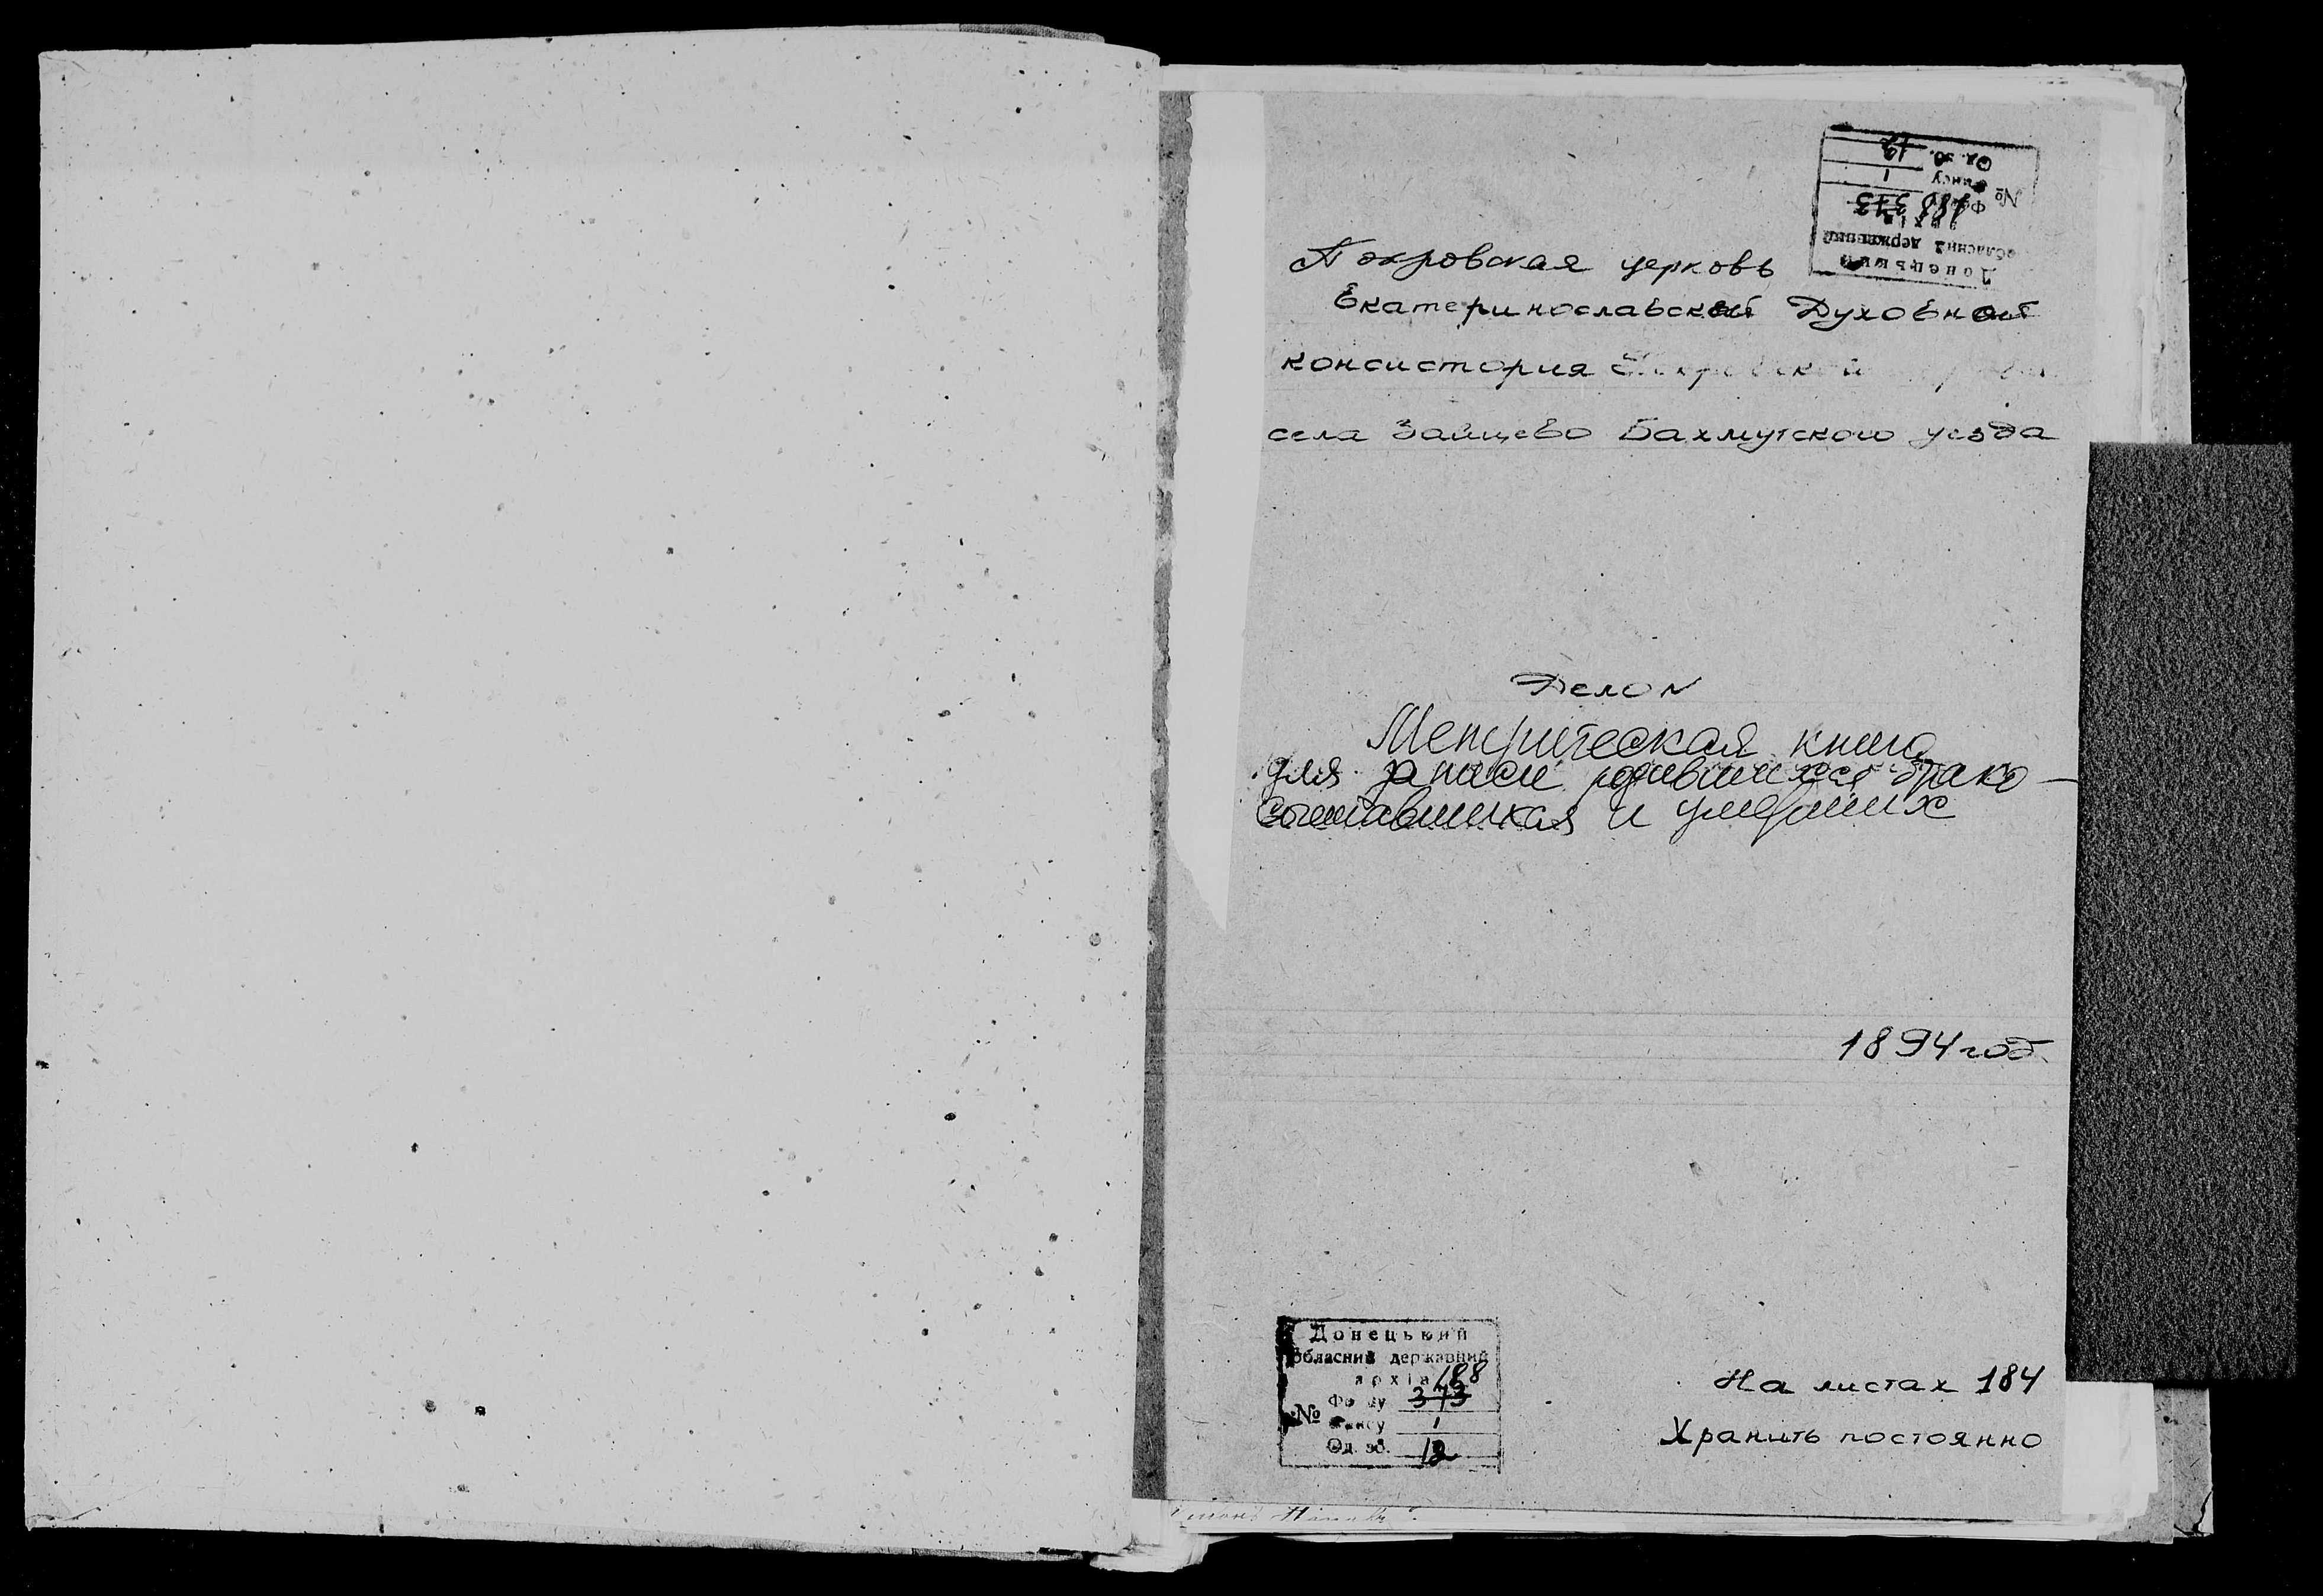 Донецький
обласний державний
архів
№ Фонду 373 188
опису 1
Од. зб. 12
Покровская церковь
Екатеринославской Духовной
консистория Покровской
села Зайцево Бахмутского уезда
Дело N
Метрическая книга
для записи родившихся брако-
сочетавшихся и умерших
1894 год
Донецький
обласний державний
архів 188
№ Фонду 373
опису 1
Од. зб. 12
На листах 184
Хранить постоянно